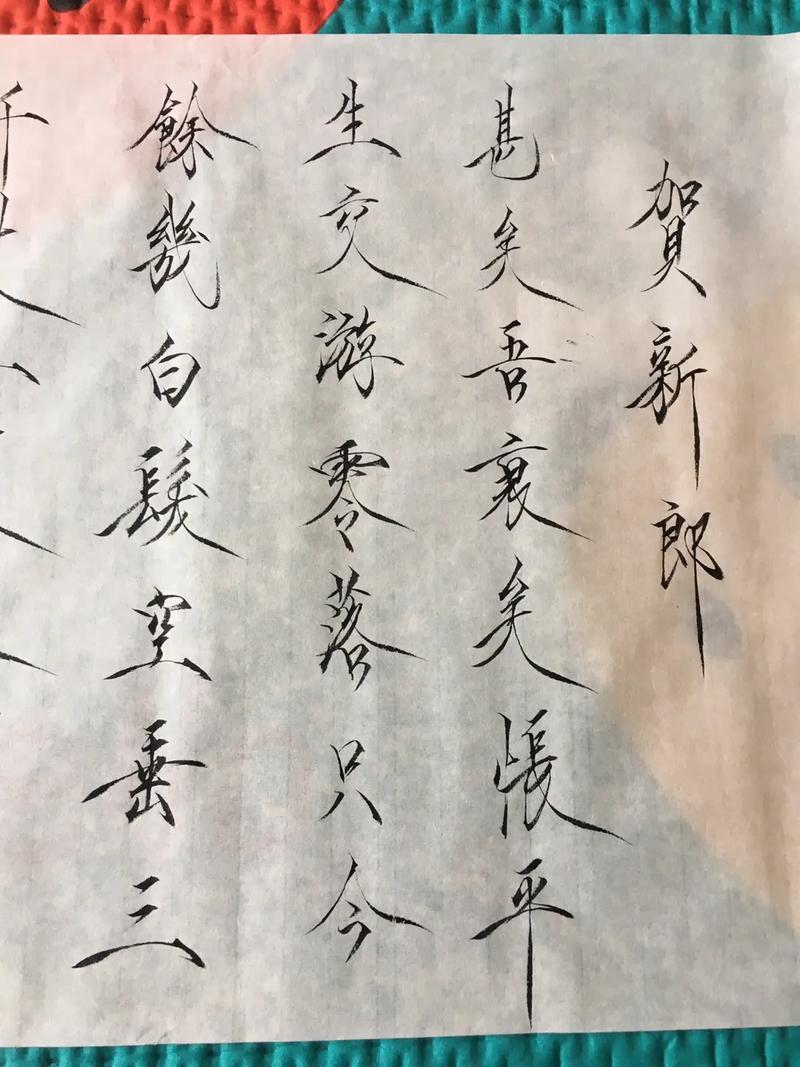 賀新郎
甚矣吾衰矣悵平
生交游零落只今
餘幾白髮空垂三
千丈